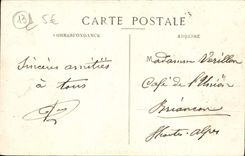 13
5€
CARTE POSTALE
CORRESPONDANCE
ADRESSE
Sincères amitiés
à tous
Madame Vérillon
Café de l'Union
Briançon
Hautes-Alpes